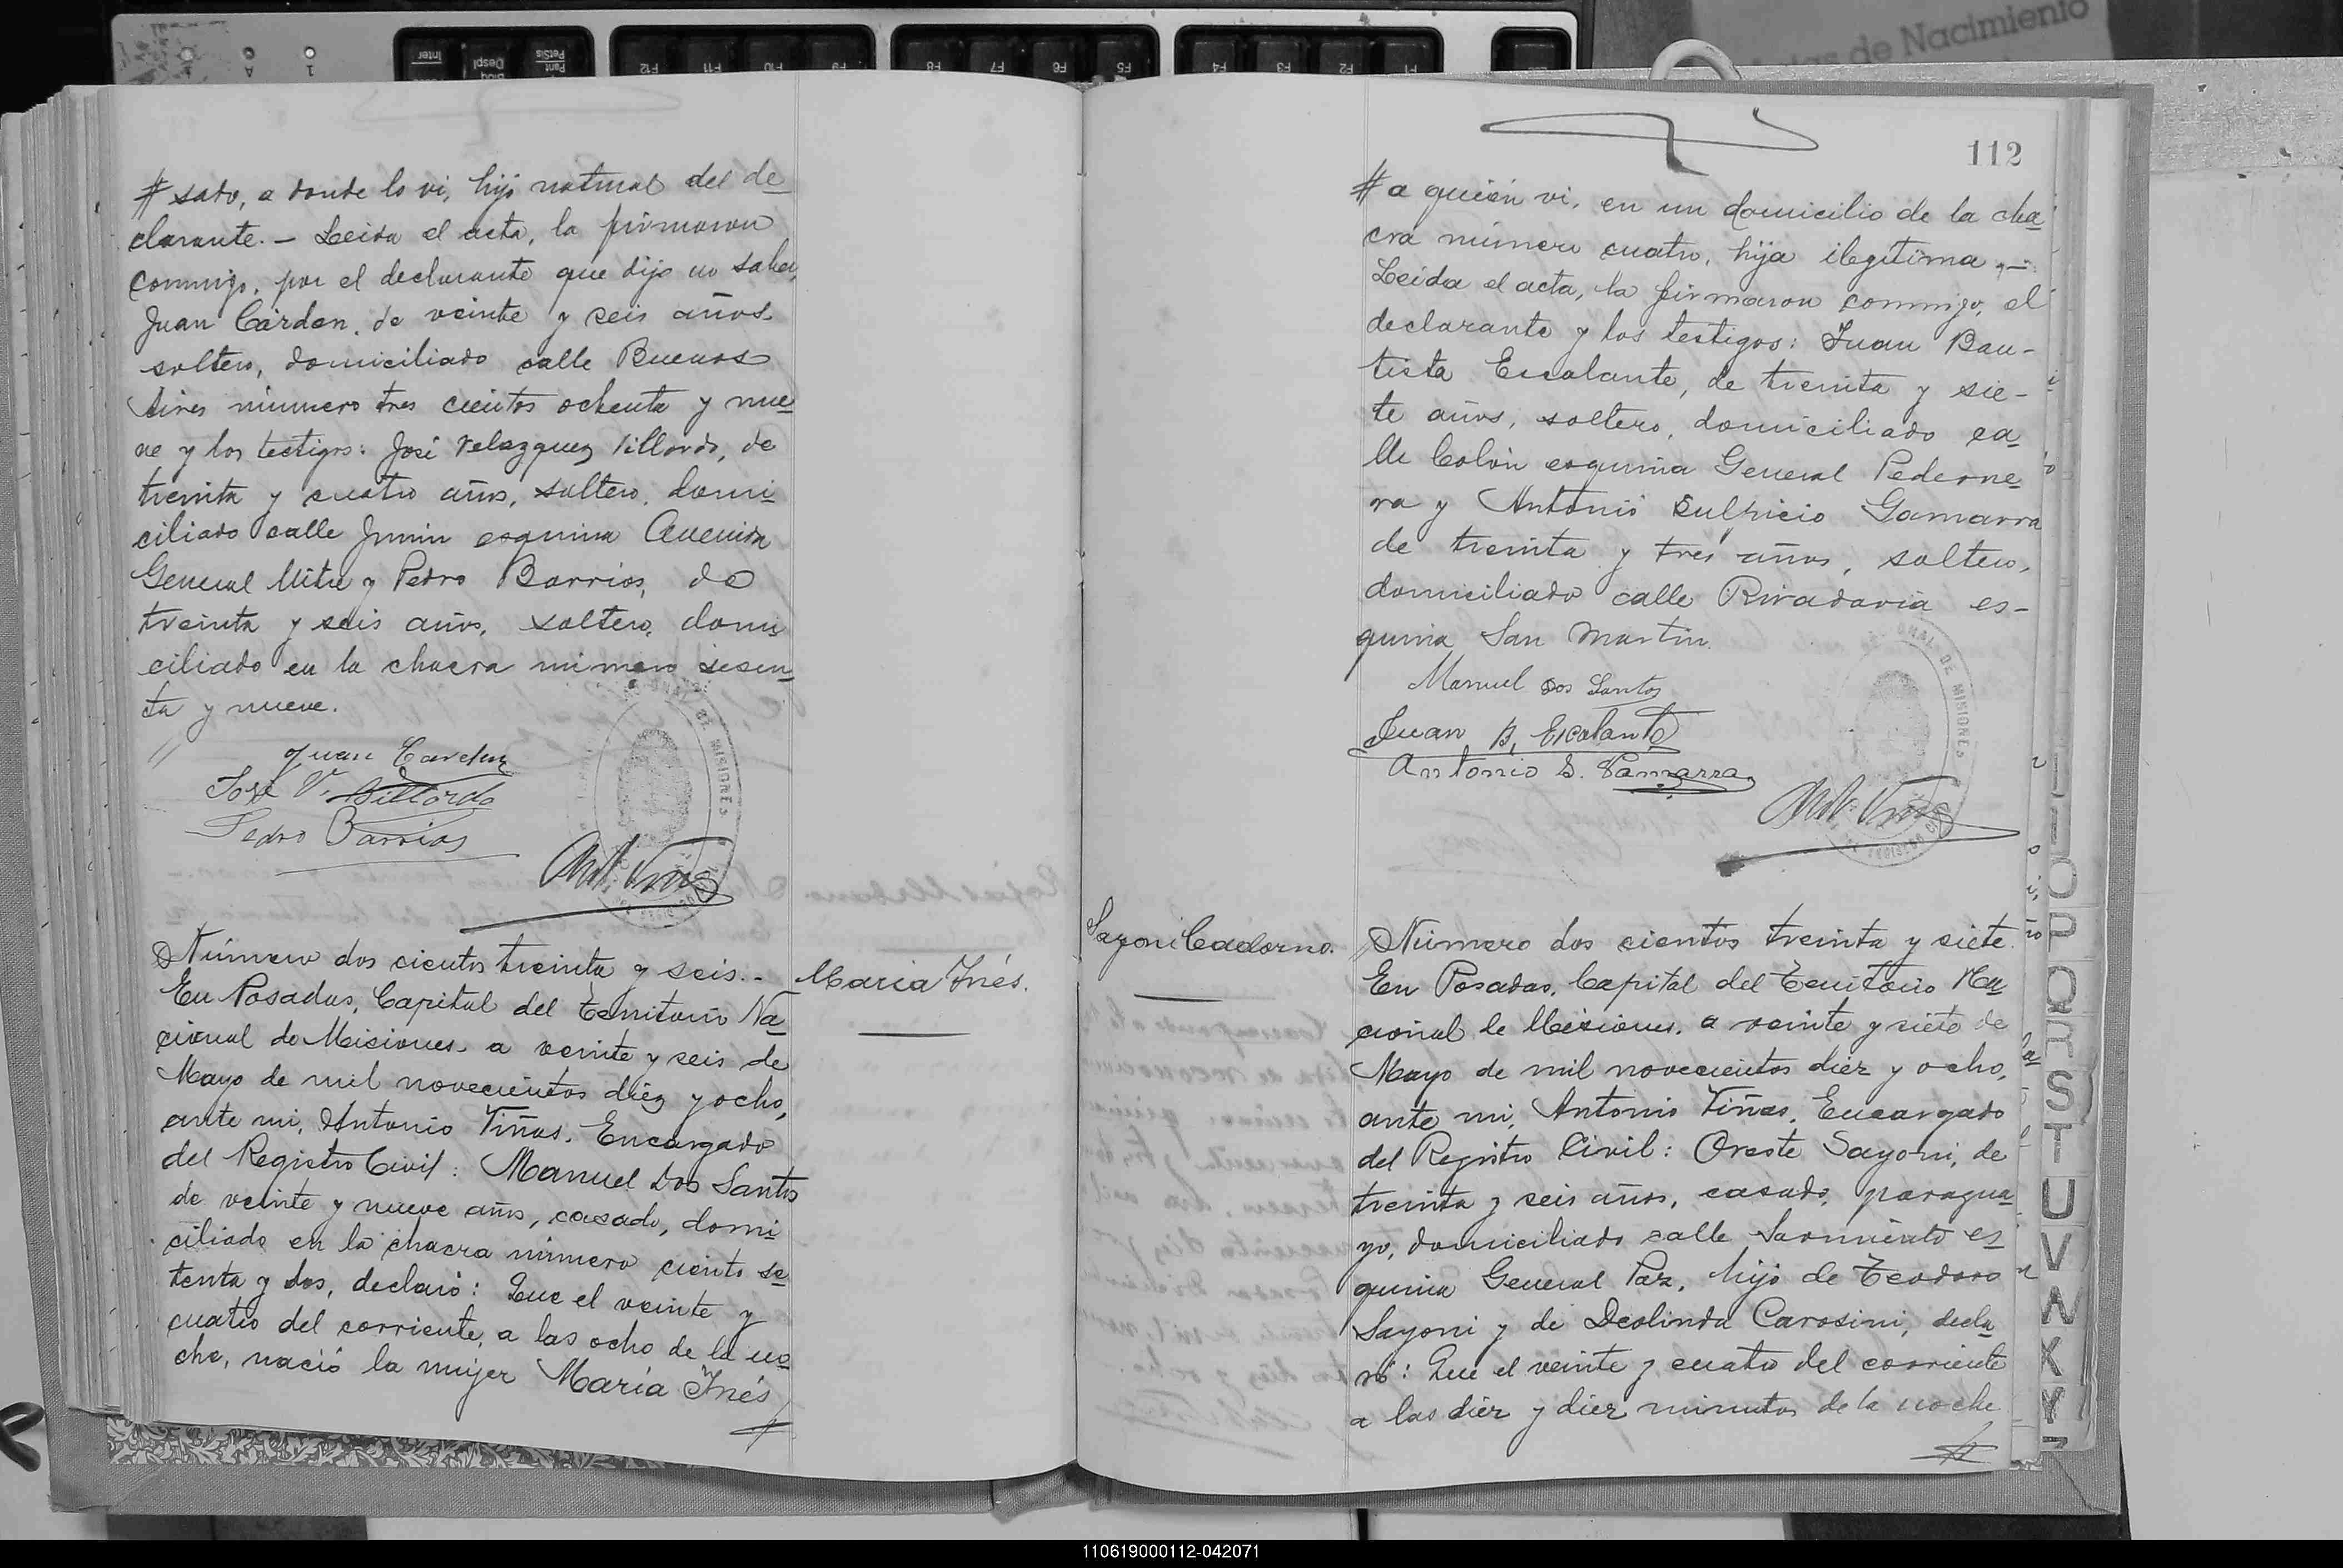 # sado, a donde lo vi, hijo natural del de
clarante. - Leida el acta, la firmaron
conmigo, por el declarante que dijo no saber,
Juan Cardan, de veinte y seis años
soltero, domiciliado calle Buenos
Aires número tres cientos ochenta y nue
ve y los testigos: José Velazquez Villordo, de
treinta y cuatro años, soltero, domi
ciliado calle Junin esquina Avenida
General Mitre y Pedro Barrios, de
treinta y seis años, soltero, domi
ciliado en la chacra número sesen
ta y nueve.
Juan Cardan
José V. Villordo
Pedro Barrios
Número dos cientos treinta y seis. -
María Inés.
En Posadas, Capital del Territorio Na
cional de Misiones a veinte y seis de
Mayo de mil novecientos diez y ocho,
ante mi, Antonio Viñas, Encargado
del Registro Civil: Manuel Dos Santos
de veinte y nueve años, casado, domi
ciliado en la chacra número ciento se
tenta y dos, declaró: Que el veinte y
cuatro del corriente, a las ocho de la no
che, nació la mujer María Inés
#
112
# a quién vi, en un domicilio de la cha
cra número cuatro, hija ilegitima. -
Leida el acta, la firmaron conmigo, el
declarante y los testigos: Juan Bau-
tista Escalante, de treinta y sie-
te años, soltero, domiciliado ca
lle Colón esquina General Pederne
ra y Antonio Sulpicio Gamarra
de treinta y tres años, soltero,
domiciliado calle Rivadavia es-
quina San Martin.
Manuel Dos Santos
Juan B. Escalante
Antonio S. Gamarra
Sayoni Cadorno.
Número dos cientos treinta y siete.
En Posadas, Capital del Territorio Na
cional de Misiones, a veinte y siete de
Mayo de mil novecientos diez y ocho,
ante mi, Antonio Viñas, Encargado
del Registro Civil: Oreste Sayoni, de
treinta y seis años, casado, paragua
yo, domiciliado calle Sarmiento es
quina General Paz, hijo de Teodoro
Sayoni y de Deolinda Carosini, decla
ró: Que el veinte y cuatro del corriente
a las diez y diez minutos de la noche
#
O
P
Q
R
S
T
U
V
W
X
Y
Z
de Nacimiento
F12
F11
F10
F9
F8
F7
F6
F5
F4
F3
F2
F1
110619000112-042071